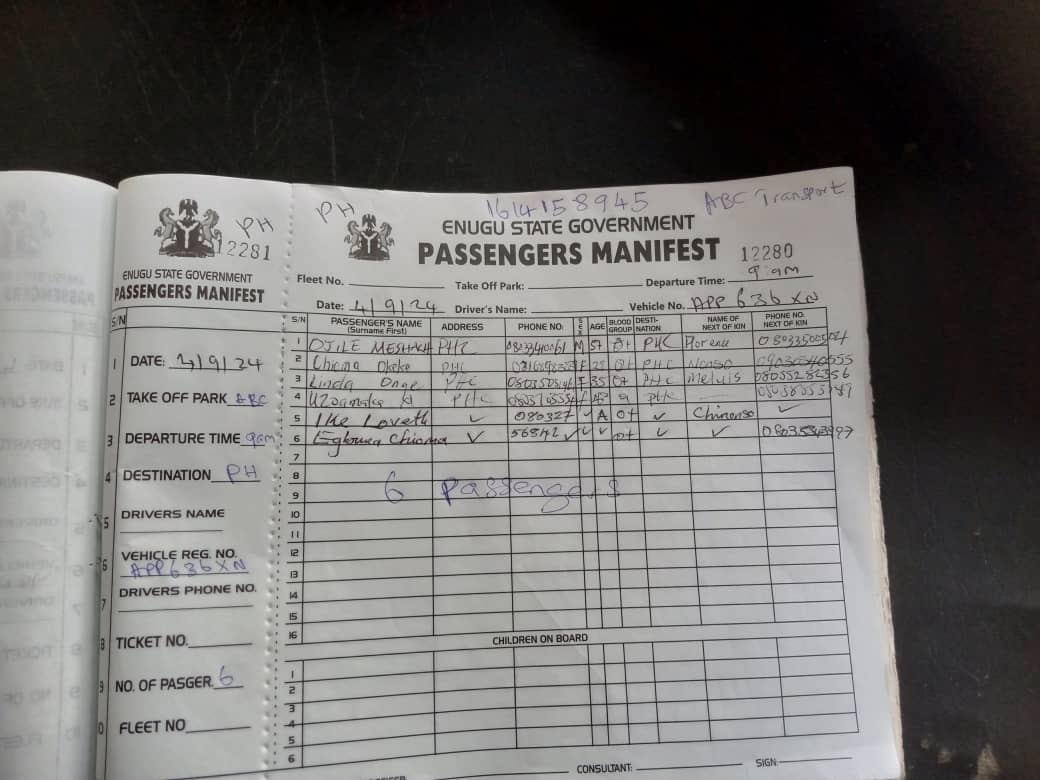 PH
12281
ENUGU STATE GOVERNMENT
PASSENGERS MANIFEST
S/N
1 DATE: 4/9/24
2 TAKE OFF PARK ABC
3 DEPARTURE TIME 9am
4 DESTINATION PH
5 DRIVERS NAME
6 VEHICLE REG. NO.
APP 636 XN
7 DRIVERS PHONE NO.
8 TICKET NO.
9 NO. OF PASGER. 6
0 FLEET NO
PH 1614158945 ABC Transport
ENUGU STATE GOVERNMENT
PASSENGERS MANIFEST 12280
Fleet No. Take Off Park: Departure Time: 9:am
Date: 4/9/24 Driver's Name: Vehicle No. APP 636 XN
S/N PASSENGER'S NAME (Surname First) ADDRESS PHONE NO. SEX AGE BLOOD GROUP DESTI-NATION NAME OF NEXT OF KIN PHONE NO. NEXT OF KIN
1 OJILE MESHACH PHC M 57 PHC Florence
2 Chioma Okeke PHC F PHC
3 Linda PHC F 35 O+ PHC
4 PHC PHC
5 Ike Loveth ✓ 080327 A O+ ✓ Chinenso ✓
6 Chioma ✓ 56842 ✓ ✓ ✓ O+ ✓ ✓
7
8
6 Passengers
9
10
11
12
13
14
15
16
CHILDREN ON BOARD
1
2
3
4
5
6
CONSULTANT: SIGN: